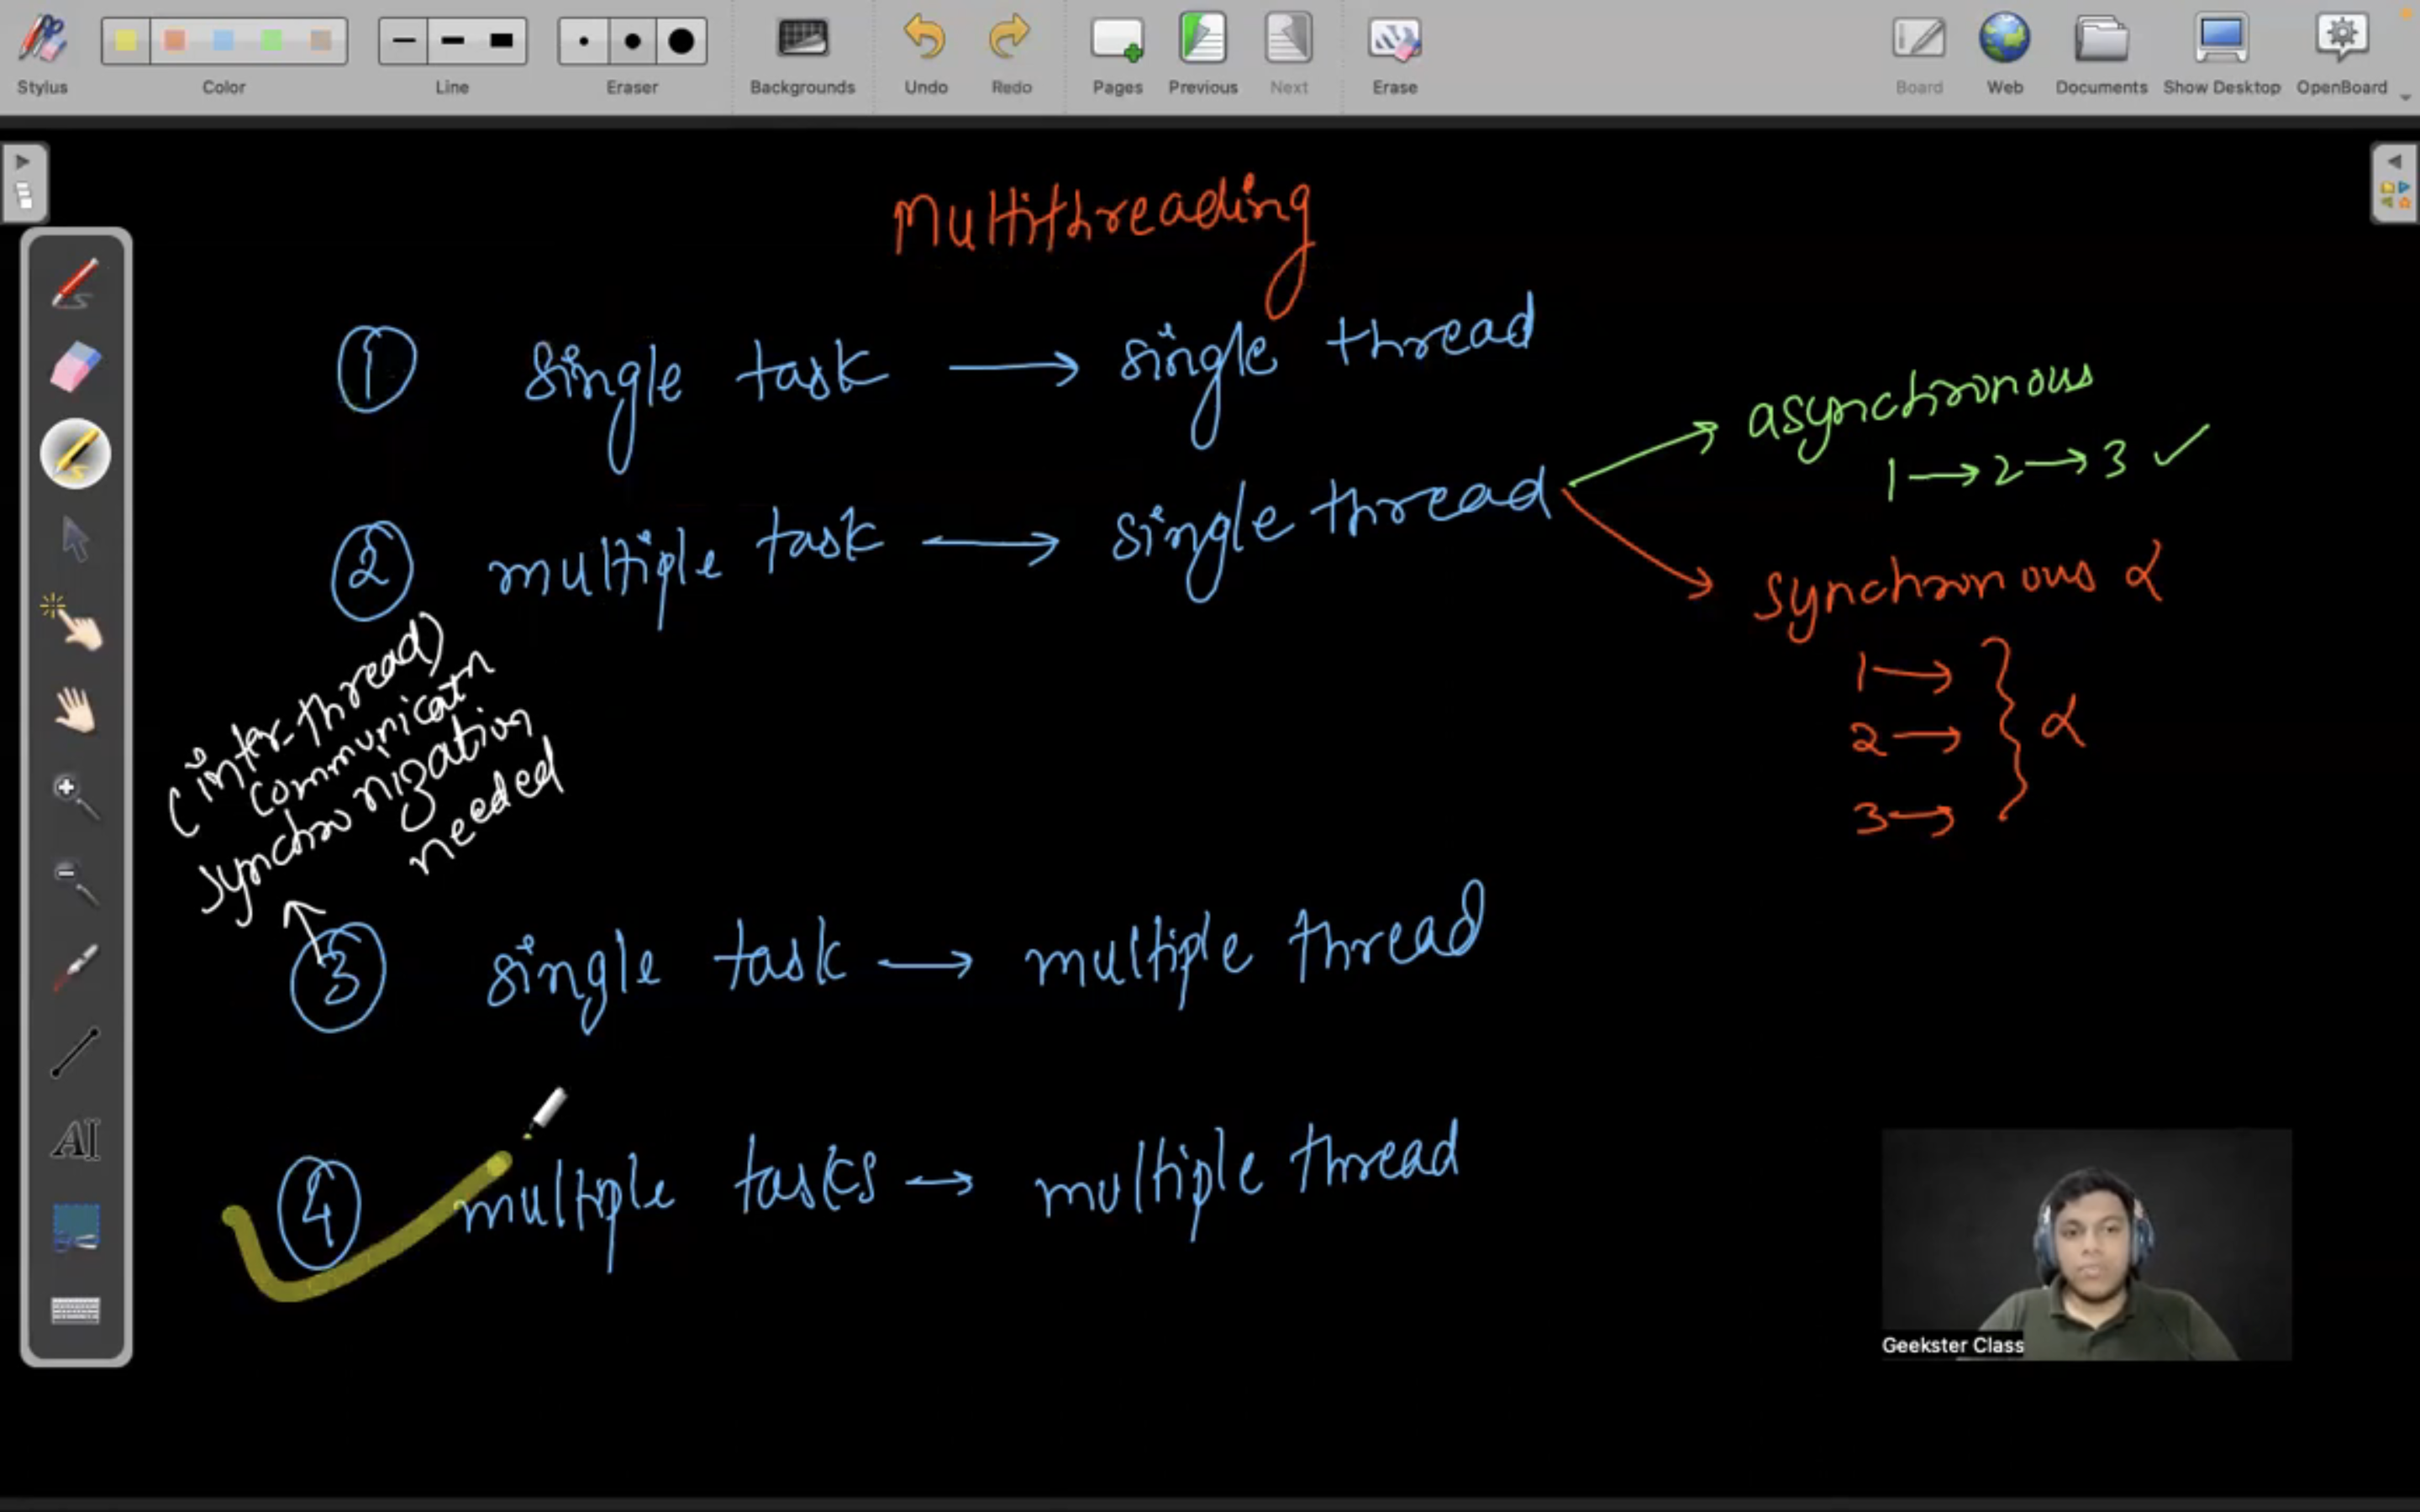 Stylus
Color
Line
Eraser
Backgrounds
Undo
Redo
Pages
Previous
Next
Erase
Board
Web
Documents
Show Desktop
OpenBoard
Multithreading
1 single task → single thread
asynchronous
1 → 2 → 3 ✓
2 multiple task → single thread
synchronous
1 →
2 →
3 →
(inter-thread)
communicatn
synchronization
needed
3 single task → multiple thread
4 multiple tasks → multiple thread
AI
Geekster Class